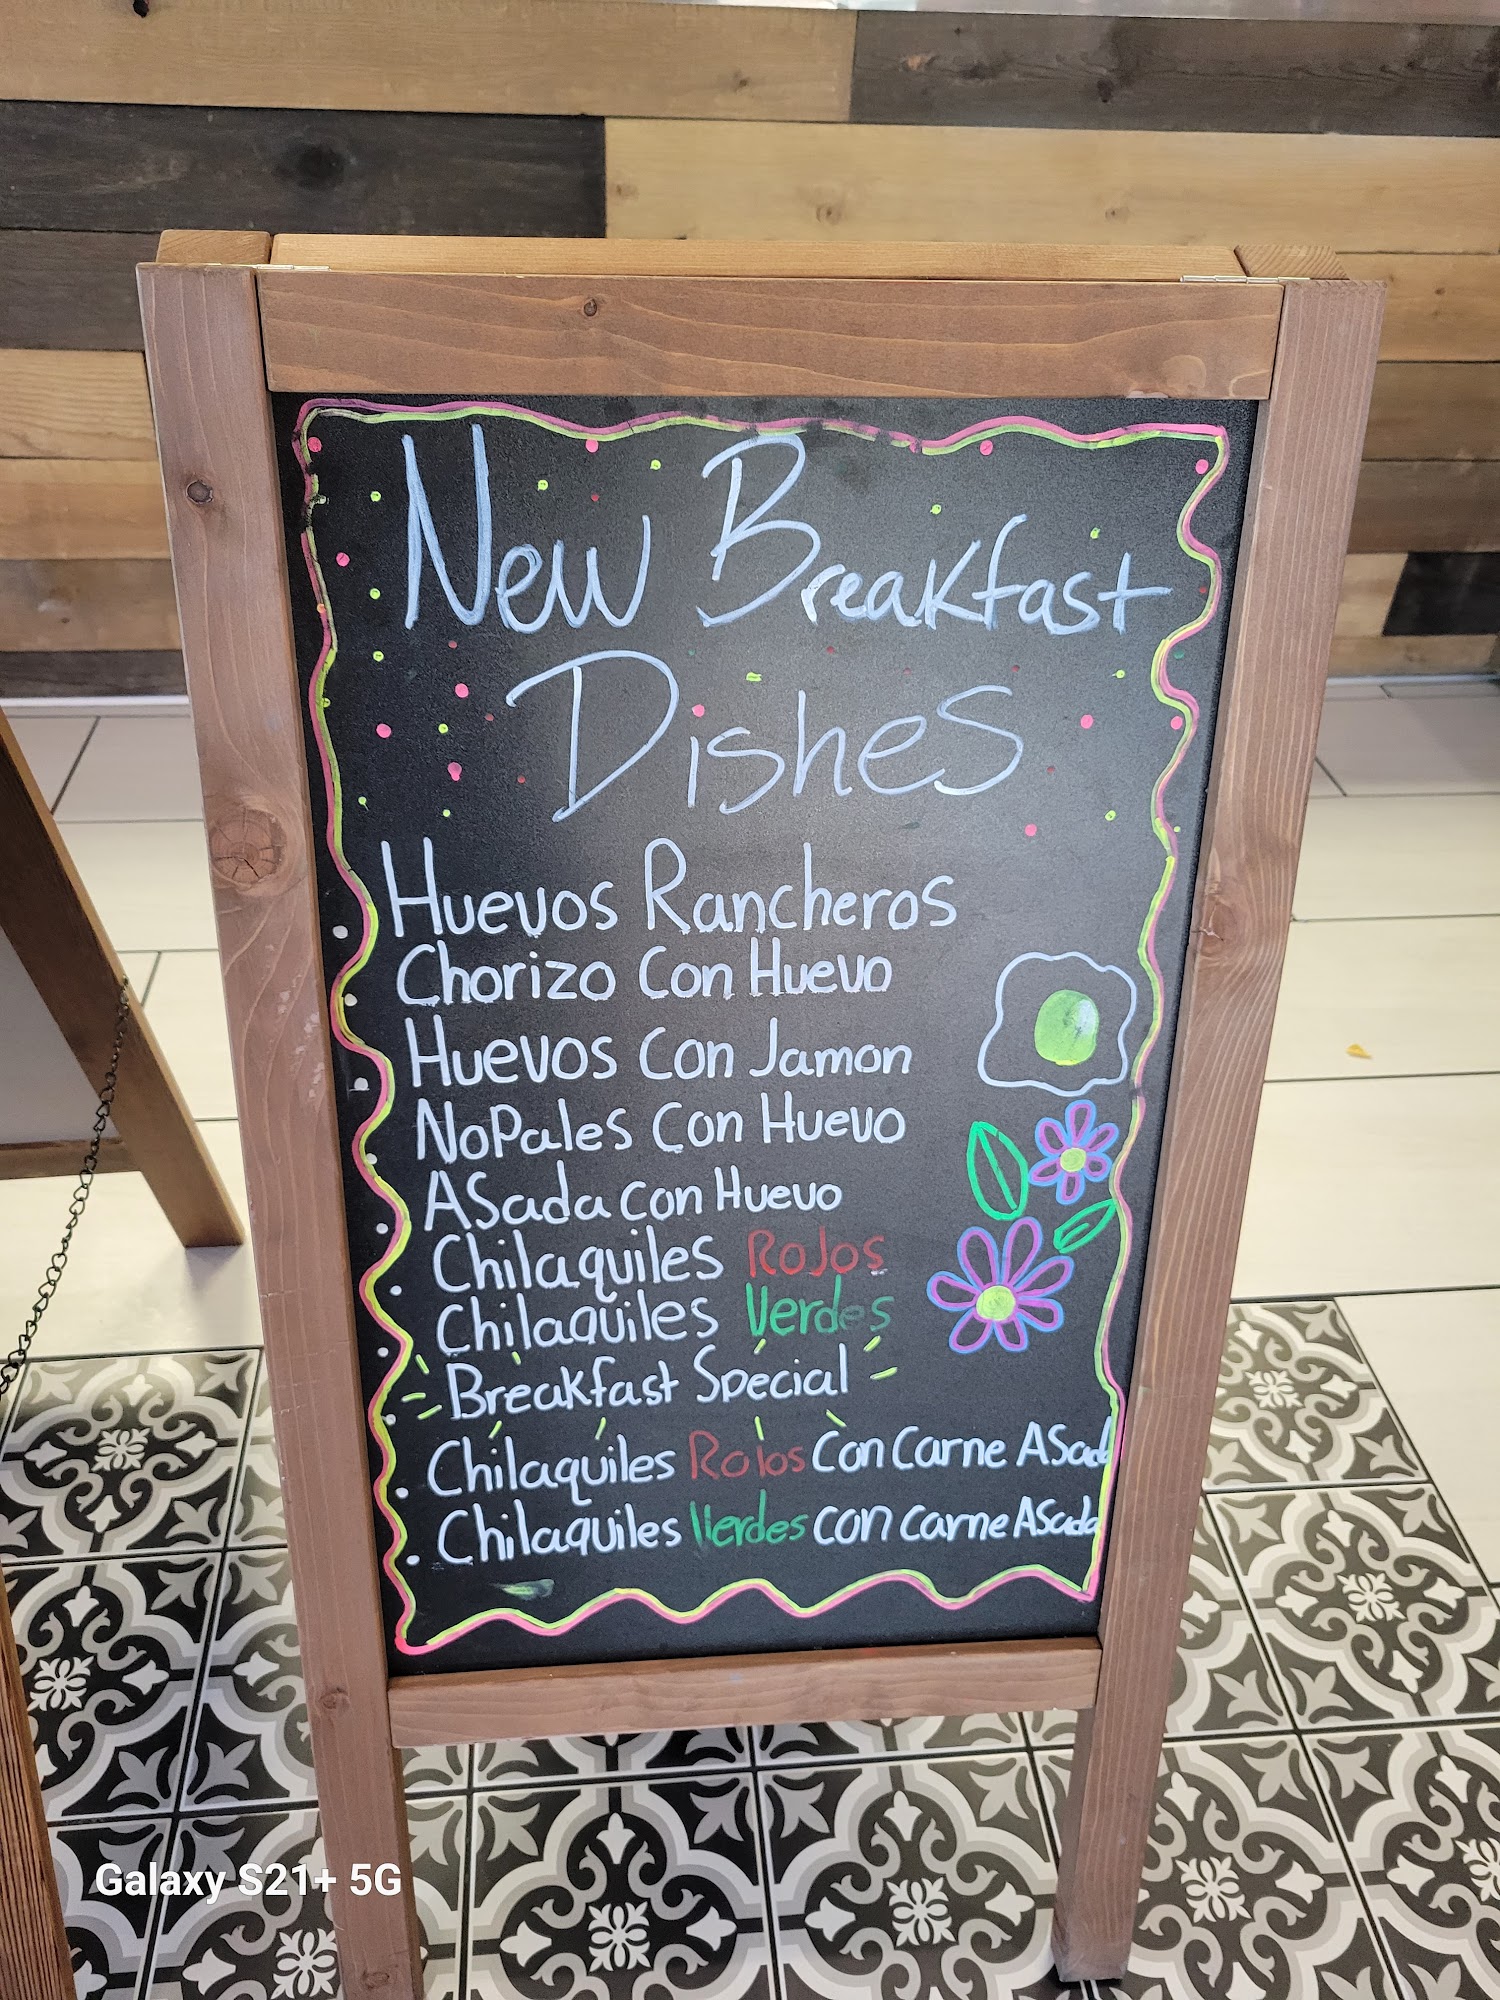 New Breakfast
Dishes
Huevos Rancheros
Chorizo Con Huevo
Huevos Con Jamon
NoPales Con Huevo
ASada Con Huevo
Chilaquiles Rojos
Chilaquiles Verdes
Breakfast Special
Chilaquiles Rojos Con Carne ASada
Chilaquiles Verdes con carne ASada
Galaxy S21+ 5G